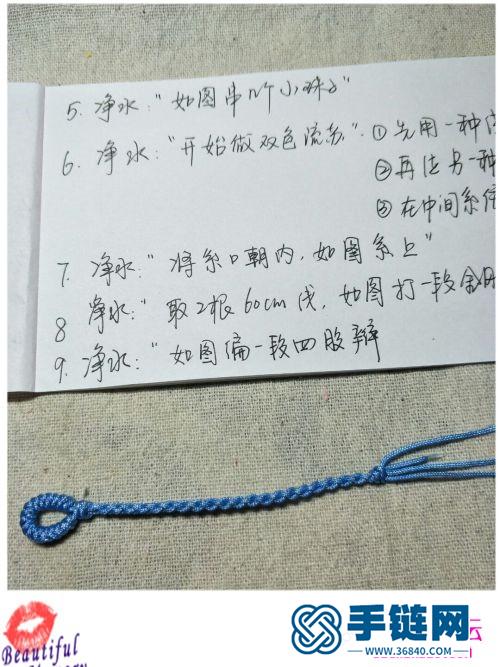 5. 净水:"如图串11个小珠子"
6. 净水:"开始做双色流苏". ①先用一种
②再注另一种
③在中间系住
7. 净水:"将系口朝内,如图系上"
8 净水:"取2根60cm线,如图打一段金刚
9. 净水:"如图编一段四股辫
Beautiful
手链网
www.36840.com